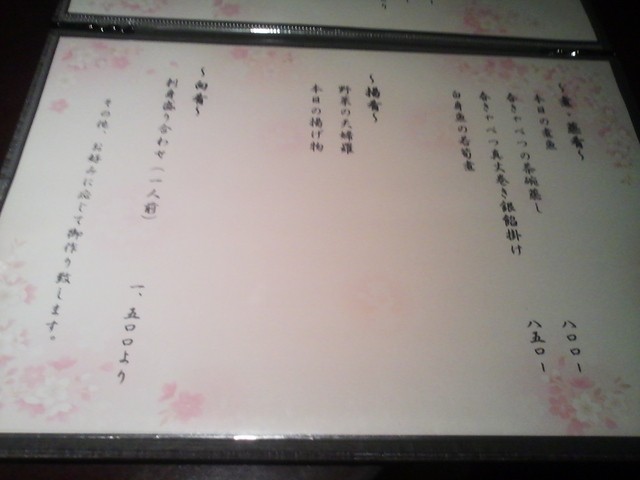 〜煮・蒸肴〜
本日の煮魚
春きゃべつの茶碗蒸し 八〇〇ー
春きゃべつ真丈巻き銀餡掛け 八五〇ー
白身魚の若筍煮
〜揚肴〜
野菜の天婦羅
本日の揚げ物
〜向肴〜
刺身盛り合わせ(一人前)
一、五〇〇より
その他、お好みに応じて御作り致します。